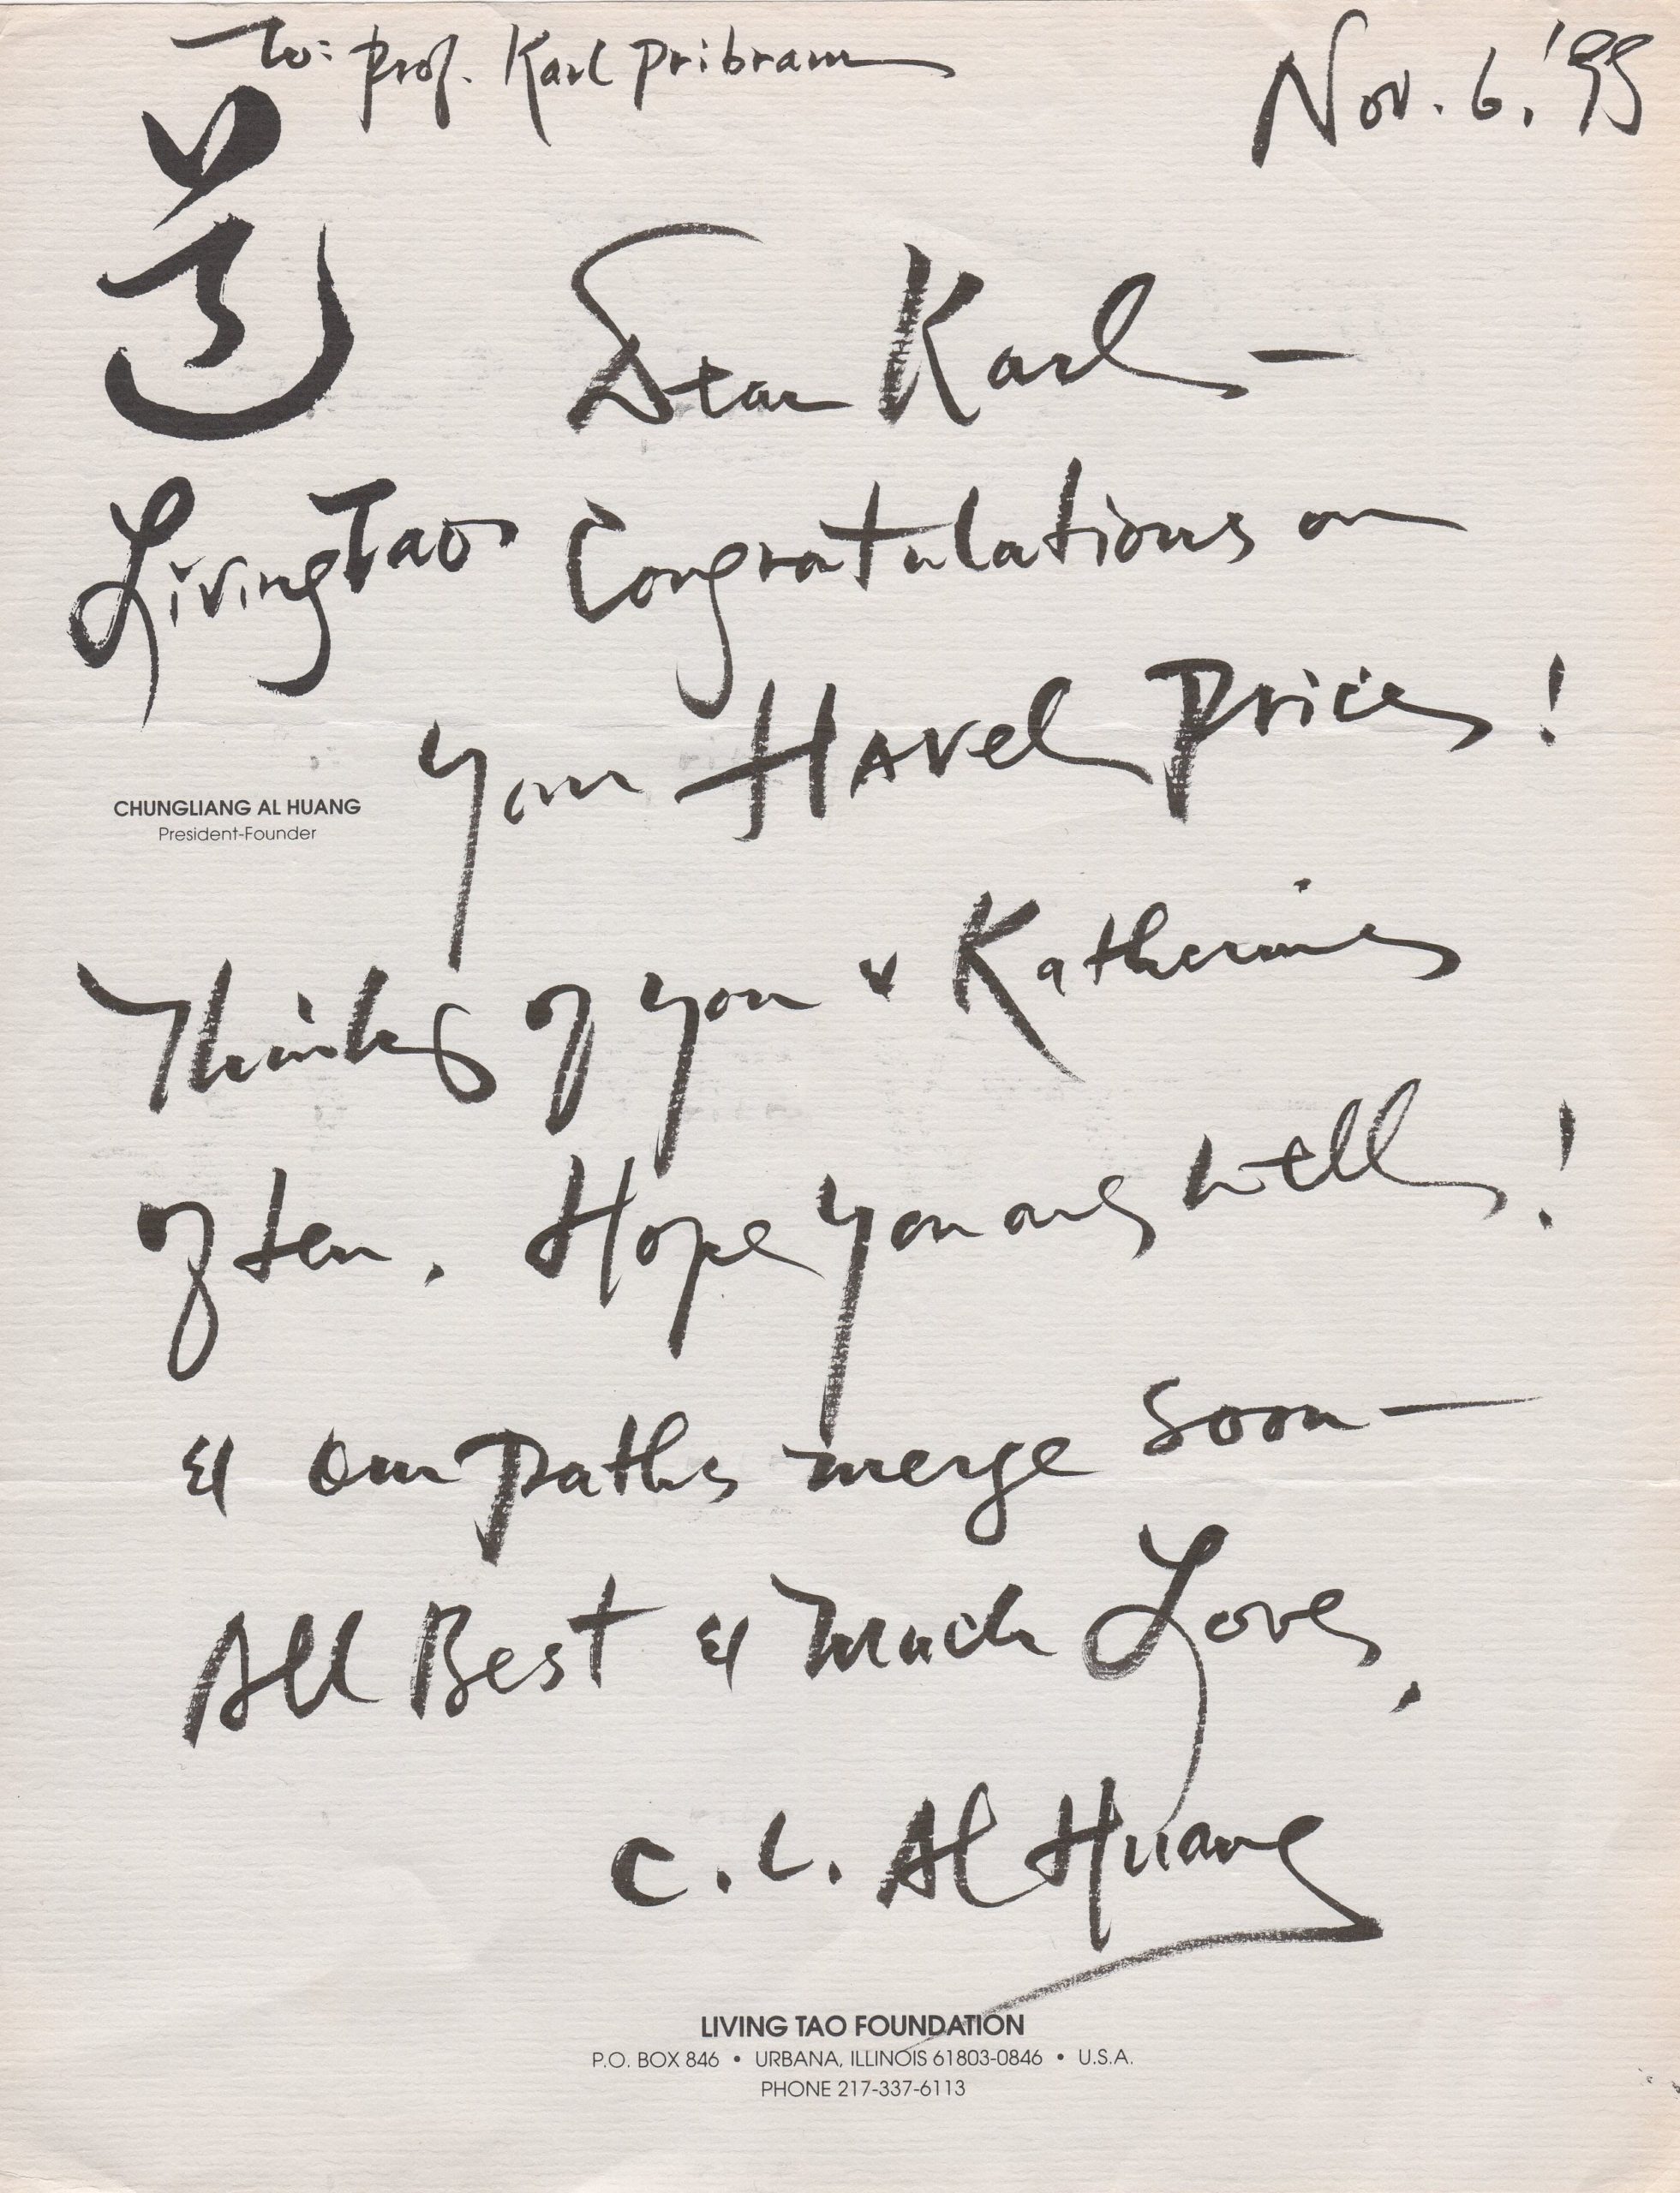 To: Prof. Karl Pribram
Nov. 6, '99
道
Dear Karl —
Living Tao
Congratulations on
your Havel Price!
CHUNGLIANG AL HUANG
President-Founder
Think of you & Katherine
often. Hope you are well!
& our paths merge soon —
All Best & Much Love,
C. L. Al Huang
LIVING TAO FOUNDATION
P.O. BOX 846 • URBANA, ILLINOIS 61803-0846 • U.S.A.
PHONE 217-337-6113